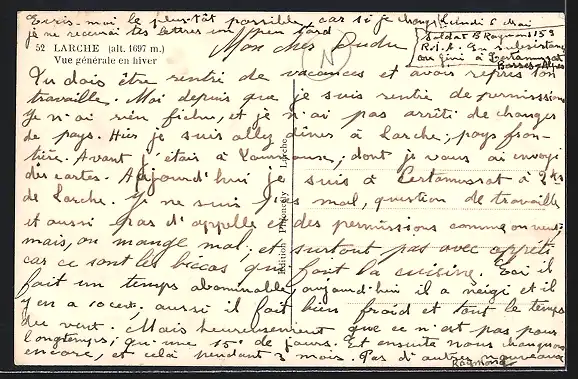 Ecris-moi le plus tôt possible car si je change
je ne recevrai tes lettres un peu tard
Lundi 6 Mai
Soldat B Raymond 153
R.I.A. En subsistance
au Génie à Certamussat
Basses-Alpes
52 LARCHE (alt. 1697 m.)
Vue générale en hiver
Mon cher Dudu
N
Tu dois être rentré de vacances et avoir repris ton
travaille. Moi depuis que je suis rentré de permissions
je n'ai rien fichu, et je n'ai pas arrêté de changer
de pays. Hier je suis allé dîner à Larche, pays fron-
tière. Avant j'étais à ; dont je vous ai envoyé
des cartes. Aujourd'hui je suis à Certamussat à 2 km
de Larche. Je ne suis pas mal, question de travaille
et aussi pas d'appelle et des permissions comme on veut,
mais, on mange mal; et surtout pas avec appétit
car ce sont les biccos qui font la cuisine. Ici il
fait un temps abominable, aujourd'hui il a neigé et il
y en a 10 cent, aussi il fait bien froid et tout le temps
du vent. Mais heureusement que ce n'est pas pour
longtemps; qu'une 15e de jours. Et ensuite nous changeons
encore, et cela pendant 3 mois. Pas d'autres nouveaux
Raymond
Edition Larche